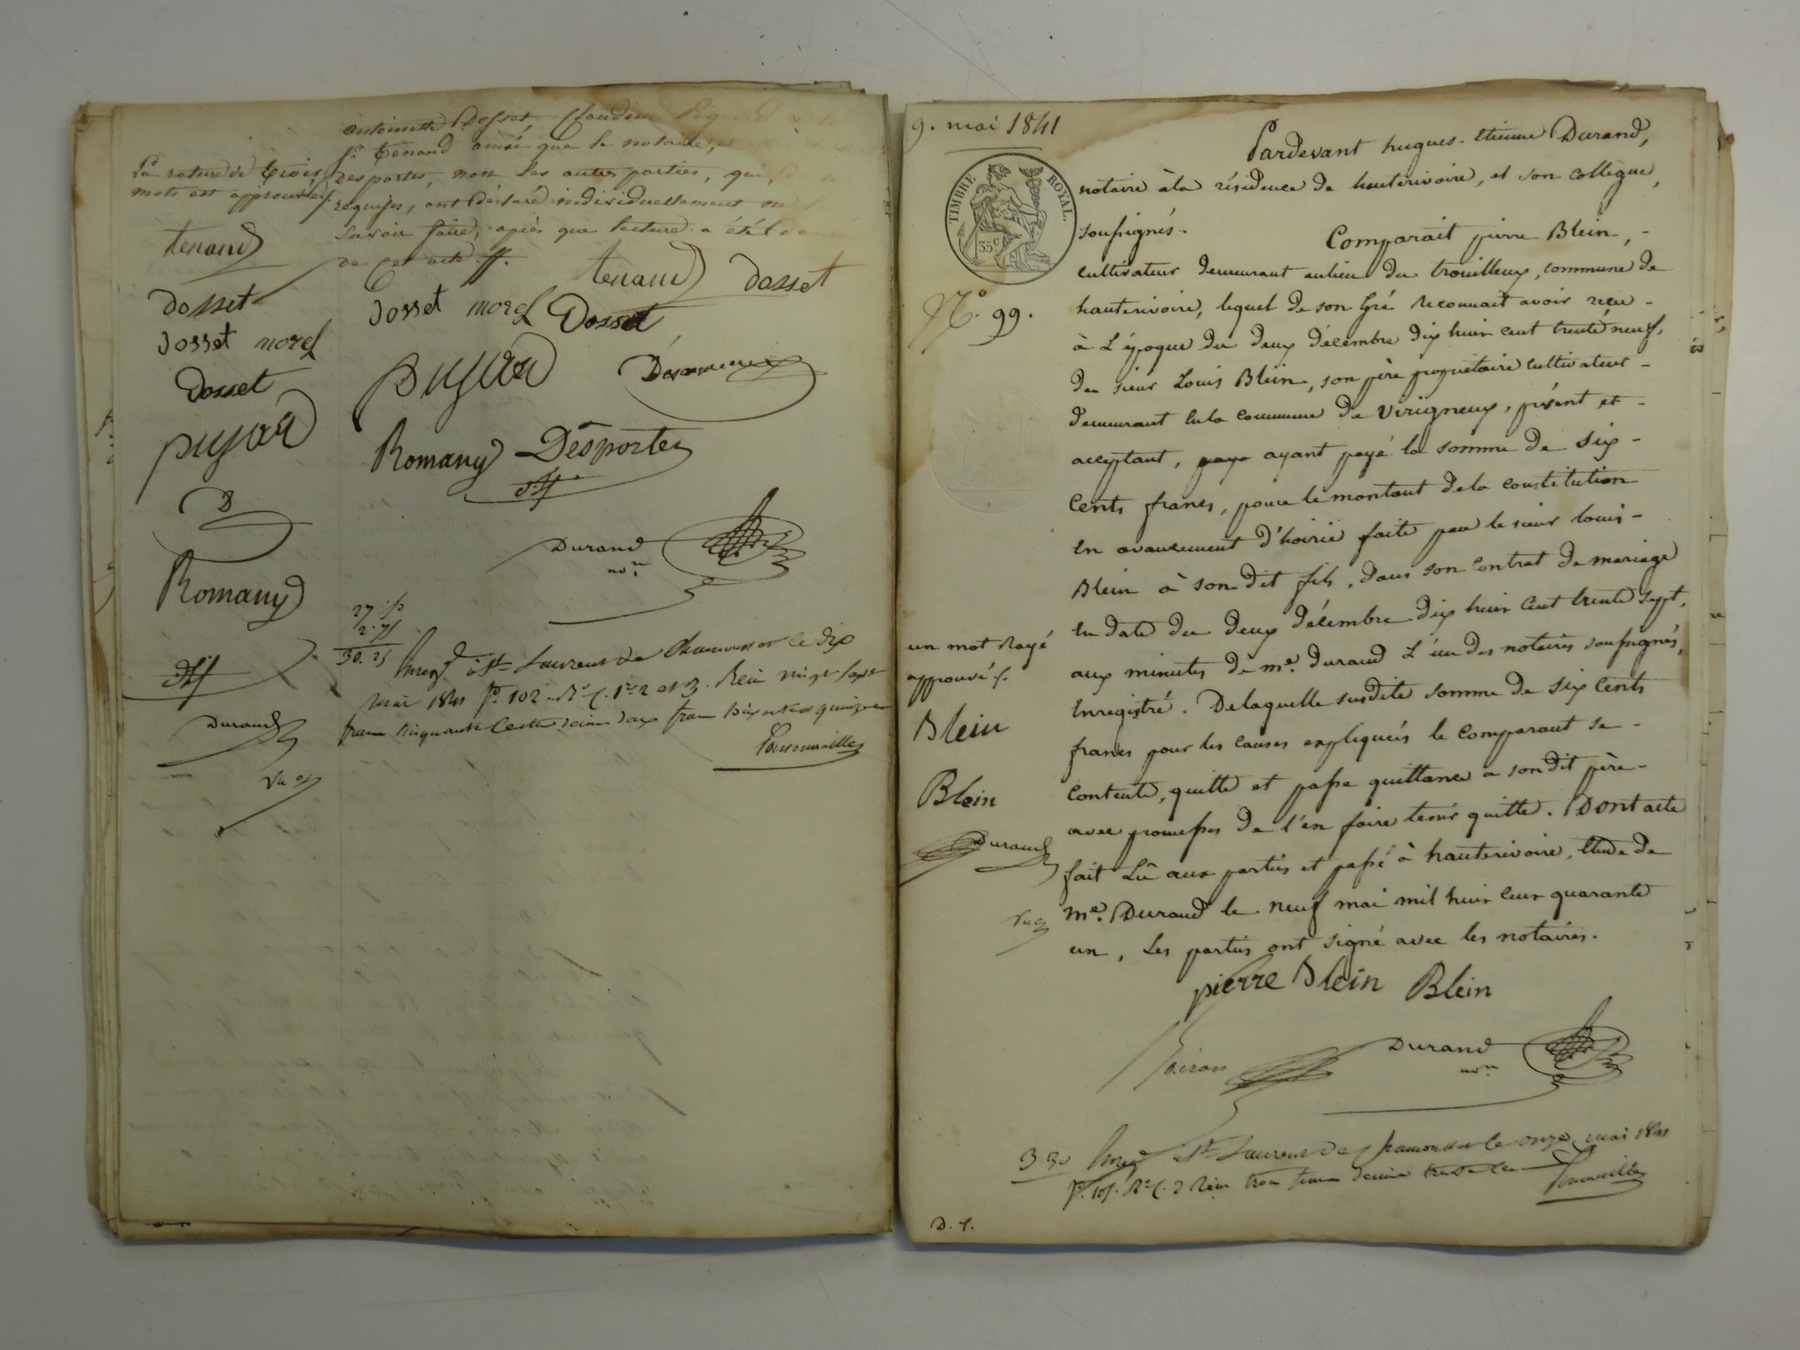 antoinette Dosset Claudine
Sr. tenand ainsi que le notaire,
desportes, non les autres parties, qui,
requises, ont déclaré individuellement ne
savoir faire, après que lecture a été
de cet acte.
La rature de trois
mots est approuvée
tenand
dosset
dosset morel
dosset
pujad
B
Romany
Durand
Vu
tenand dosset
dosset morel Dosset
pujad
Romany Desportes
Durand
nore
27.50
2.75
30.25
Enregé à St. Laurent de Chamousset le dix
mai 1841 fo. 102 Ro. C. 1re 2 et 3. Reçu vingt sept
francs cinquante centes décime deux francs soixante quinze
9. mai 1841
TIMBRE ROYAL.
35c
No. 99.
Pardevant hugues-étienne Durand,
notaire à la résidence de hauterivoire, et son collègue,
soussignés.
Comparait pierre Blein, -
cultivateur demeurant au lieu du trouilleux, commune de
hauterivoire, lequel de son gré reconnait avoir reçu -
à l'époque du deux décembre dix huit cent trente neuf,
du sieur Louis Blein, son père propriétaire cultivateur -
demeurant en la commune de Virigneux, présent et -
acceptant, paye ayant payé la somme de six -
Cents francs, pour le montant de la constitution
en avancement d'hoirie faite par le sieur louis -
Blein à son dit fils, dans son contrat de mariage
en date du deux décembre dix huit cent trente sept,
aux minutes de me. durand l'un des notaires soussignés,
Enregistré. De laquelle susdite somme de six cents
francs pour les causes expliquées le comparant se -
contente, quitte et passe quittance à son dit père -
avec promesses de l'en faire tenir quitte. Dont acte
fait Lû aux parties et passé à hauterivoire, étude de
me. Durand le neuf mai mil huit cent quarante
un, Les parties ont signé avec les notaires.
un mot rayé
approuvé
Blein
Blein
Durand
Vu
pierre Blein Blein
Durand
nore
3 30
Enregé à St. Laurent de Chamousset le onze mai 1841
fo. 105. Ro. C. 2 Reçu trois francs décime trente ces
D. f.